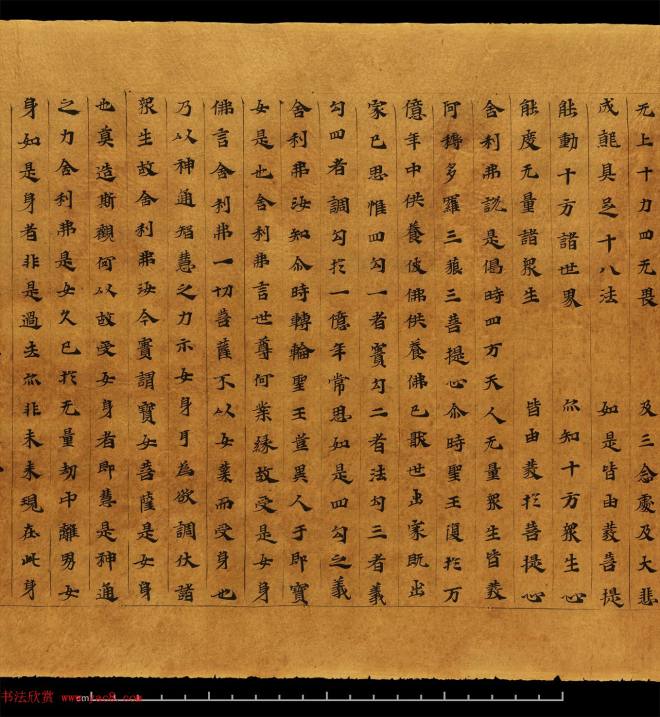 无上十力四无畏　及三念處及大悲
成就具足十八法　如是皆由發菩提
能動十方諸世界　亦知十方衆生心
能度无量諸衆生　皆由發於菩提心
舍利弗說是偈時四万天人无量衆生皆發
阿耨多羅三藐三菩提心尒時聖王復於万
億年中供養彼佛供養佛已猒世出家既出
家已思惟四勾一者寶勾二者法勾三者義
勾四者調勾於一億年常思如是四勾之義
舍利弗汝知尒時轉輪聖王豈異人乎即寶
女是也舍利弗言世尊何業緣故受是女身
佛言舍利弗一切菩薩不以女業而受身也
乃以神通智慧之力示女身耳為欲調伏諸
衆生故舍利弗汝今實謂寶女菩薩是女身
也莫造斯觀何以故受女身者即慧是神通
之力舍利弗是女久已於无量劫中離男女
身如是身者非是過去亦非未來現在此身
书法欣赏 www.yac8.com
cm